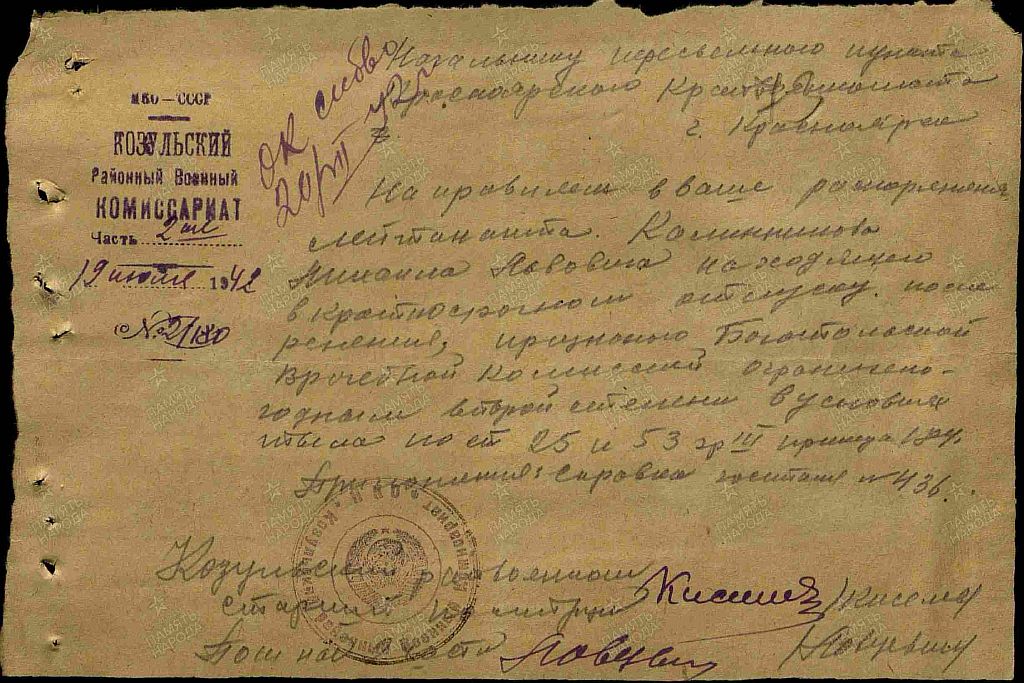 НКО — СССР
КОЗУЛЬСКИЙ
Районный Военный
КОМИССАРИАТ
Часть 2ая
19 июля 1942
№ 2/180
20/VII
Начальнику пересыльного пункта
Красноярского Крайвоенкомата
г. Красноярск
Направляем в ваше распоряжение
лейтенанта Калинникова
Михаила Львовича находящего
в краткосрочном отпуску после
ранения, признаного Боготольской
Врачебной Комиссией ограничено-
годным второй степени в условиях
тыла по ст 25 и 53 гр III приказа
Приложения: Справка госпиталя № 436.
Козульский райвоенком
старший
Пом нач части
ПАМЯТЬ НАРОДА